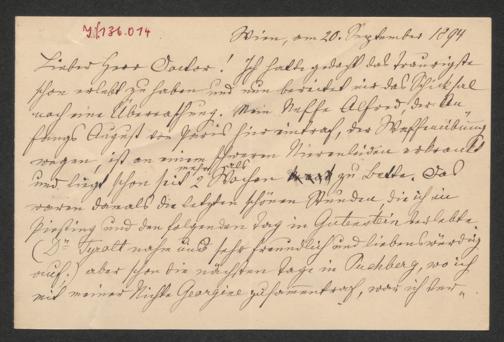 I.N. 136.014
Wien, am 20. September 1894
Lieber Herr Doctor! Ich hatte gedacht das Traurigste
schon erlebt zu haben und nun bereitet mir das Schicksal
noch eine Überraschung. Mein Neffe Alfred, der An
fangs August von Paris hier eintraf, der Waffenübung
wegen, ist an einem schweren Nierenleiden erkrankt
und liegt schon seit mehr als 2 Wochen zu Bette. Das
waren damals die letzten schönen Stunden, die ich in
Piesting und den folgenden Tag in Gutenstein verlebte
(Dr Tyrolt nahm uns sehr freundlich und liebenswürdig
auf.) aber schon die nächsten Tage in Puchberg, wo ich
mit meiner Nichte Georgine zusammentraf, war ich ver-